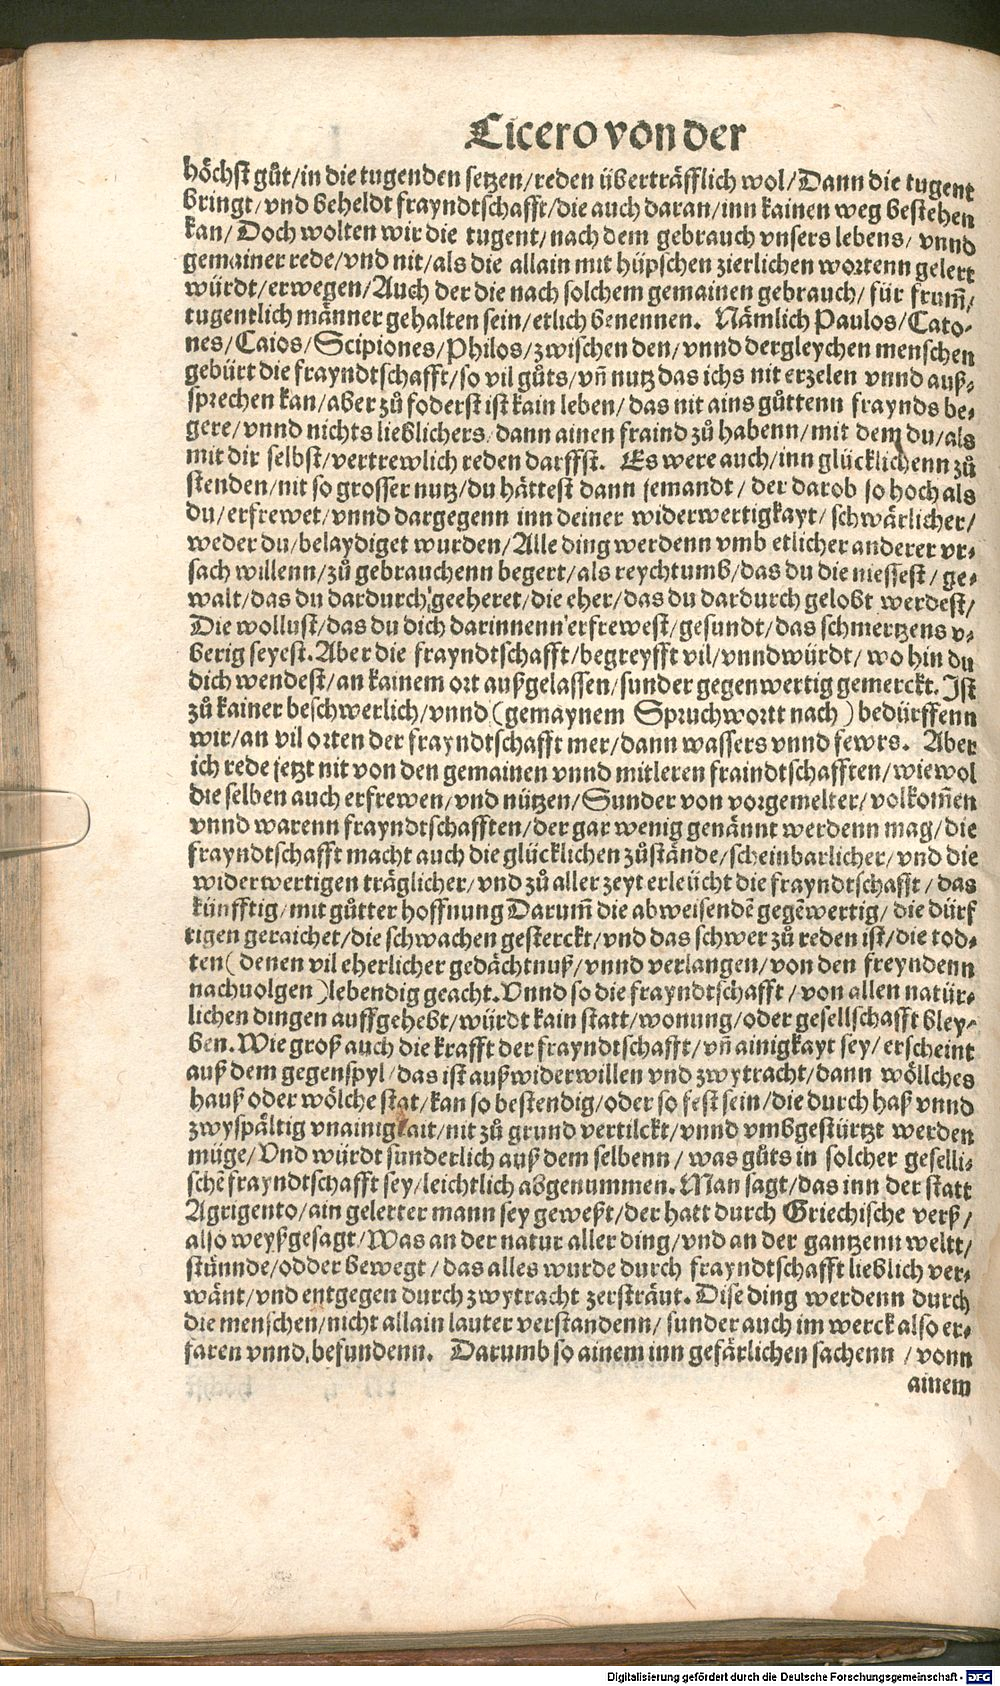 Cicero von der
höchst gůt/in die tugenden setzen/reden überträfflich wol/Dann die tugent
bringt/vnd beheldt frayndtschafft/die auch daran/inn kainen weg bestehen
kan/Doch wolten wir die tugent/nach dem gebrauch vnsers lebens/vnnd
gemainer rede/vnd nit/als die allain mit hüpschen zierlichen wortenn gelert
würdt/erwegen/Auch der die nach solchem gemainen gebrauch/für frum̃/
tugentlich männer gehalten sein/etlich benennen. Nämlich Paulos/Cato⸗
nes/Caios/Scipiones/Philos/zwischen den/vnnd dergleychen menschen
gebürt die frayndtschafft/so vil gůts/vñ nutz das ichs nit erzelen vnnd auß⸗
sprechen kan/aber zů foderst ist kain leben/das nit ains gůttenn fraynds be⸗
gere/vnnd nichts lieblichers/dann ainen fraind zů habenn/mit dem du/als
mit dir selbst/vertrewlich reden darffst. Es were auch/inn glücklichenn zů
stenden/nit so grosser nutz/du hättest dann jemandt/der darob so hoch als
du/erfrewet/vnnd dargegenn inn deiner widerwertigkayt/schwärlicher/
weder du/belaydiget wurden/Alle ding werdenn vmb etlicher anderer vr⸗
sach willenn/zů gebrauchenn begert/als reychtumb/das du die niessest/ge⸗
walt/das du dardurch geeheret/die eher/das du dardurch gelobt werdest/
Die wollust/das du dich darinnenn erfrewest/gesundt/das schmertzens v⸗
berig seyest. Aber die frayndtschafft/begreyfft vil/vnnd würdt/wo hin du
dich wendest/an kainem ort außgelassen/sunder gegenwertig gemerckt. Ist
zů kainer beschwerlich/vnnd (gemaynem Spruchwortt nach) bedürffenn
wir/an vil orten der frayndtschafft mer/dann wassers vnnd fewrs. Aber
ich rede jetzt nit von den gemainen vnnd mitleren fraindtschafften/wiewol
die selben auch erfrewen/vnd nützen/Sunder von vorgemelter/volkom̃en
vnnd warenn frayndtschafften/der gar wenig genännt werdenn mag/die
frayndtschafft macht auch die glücklichen zůstände/scheinbarlicher/vnd die
widerwertigen träglicher/vnd zů aller zeyt erleücht die frayndtschafft/das
künfftig/mit gůtter hoffnung Darum̃ die abweisendẽ gegẽwertig/die dürf
tigen geraichet/die schwachen gesterckt/vnd das schwer zů reden ist/die tod⸗
ten (denen vil eherlicher gedächtnuß/vnnd verlangen/von den freyndenn
nachuolgen) lebendig geacht. Vnnd so die frayndtschafft/von allen natür⸗
lichen dingen auffgehebt/würdt kain statt/wonung/oder gesellschafft bley⸗
ben. Wie groß auch die krafft der frayndtschafft/vñ ainigkayt sey/erscheint
auß dem gegenspyl/das ist auß widerwillen vnd zwytracht/dann wöllches
hauß oder wölche stat/kan so bestendig/oder so fest sein/die durch haß vnnd
zwyspältig vnainigkait/nit zů grund vertilckt/vnnd vmbgestürtzt werden
müge/Vnd würdt sunderlich auß dem selbenn/was gůts in solcher geselli⸗
schẽ frayndtschafft sey/leichtlich abgenummen. Man sagt/das inn der statt
Agrigento/ain gelerter mann sey geweßt/der hatt durch Griechische verß/
also weyßgesagt/Was an der natur aller ding/vnd an der gantzenn weltt/
stünnde/odder bewegt/das alles wurde durch frayndtschafft lieblich ver⸗
wänt/vnd entgegen durch zwytracht zersträut. Dise ding werdenn durch
die menschen/nicht allain lauter verstandenn/sunder auch im werck also er⸗
faren vnnd befundenn. Darumb so ainem inn gefärlichen sachenn/vonn
ainem
Digitalisierung gefördert durch die Deutsche Forschungsgemeinschaft - DFG